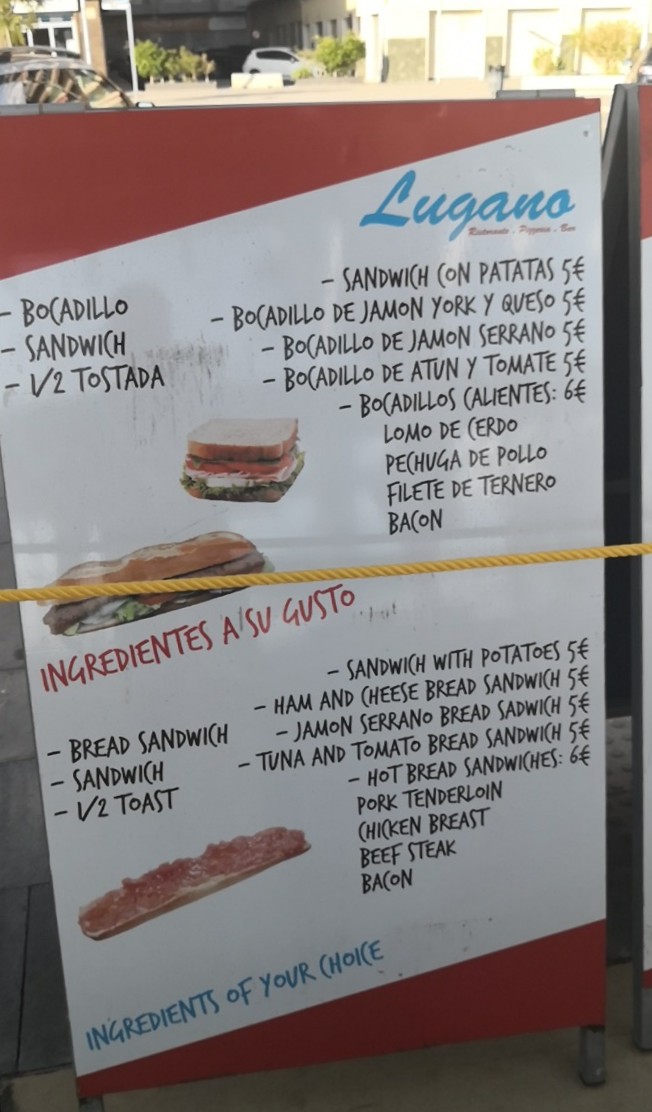 Lugano
Ristorante . Pizzeria . Bar
- BOCADILLO
- SANDWICH
- 1/2 TOSTADA
- SANDWICH CON PATATAS 5€
- BOCADILLO DE JAMON YORK Y QUESO 5€
- BOCADILLO DE JAMON SERRANO 5€
- BOCADILLO DE ATUN Y TOMATE 5€
- BOCADILLOS CALIENTES: 6€
LOMO DE CERDO
PECHUGA DE POLLO
FILETE DE TERNERO
BACON
INGREDIENTES A SU GUSTO
- BREAD SANDWICH
- SANDWICH
- 1/2 TOAST
- SANDWICH WITH POTATOES 5€
- HAM AND CHEESE BREAD SANDWICH 5€
- JAMON SERRANO BREAD SADWICH 5€
- TUNA AND TOMATO BREAD SANDWICH 5€
- HOT BREAD SANDWICHES: 6€
PORK TENDERLOIN
CHICKEN BREAST
BEEF STEAK
BACON
INGREDIENTS OF YOUR CHOICE